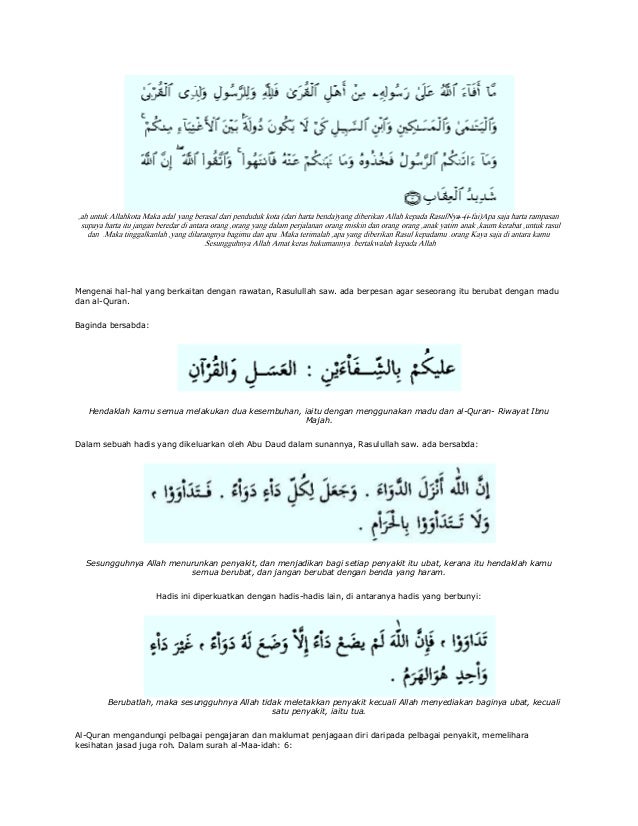 مَّآ أَفَآءَ ٱللَّهُ عَلَىٰ رَسُولِهِۦ مِنْ أَهْلِ ٱلْقُرَىٰ فَلِلَّهِ وَلِلرَّسُولِ وَلِذِى ٱلْقُرْبَىٰ
وَٱلْيَتَـٰمَىٰ وَٱلْمَسَـٰكِينِ وَٱبْنِ ٱلسَّبِيلِ كَىْ لَا يَكُونَ دُولَةًۢ بَيْنَ ٱلْأَغْنِيَآءِ مِنكُمْ ۚ
وَمَآ ءَاتَىٰكُمُ ٱلرَّسُولُ فَخُذُوهُ وَمَا نَهَىٰكُمْ عَنْهُ فَٱنتَهُوا۟ ۚ وَٱتَّقُوا۟ ٱللَّهَ ۖ إِنَّ ٱللَّهَ
شَدِيدُ ٱلْعِقَابِ ۝
,ah untuk Allahkota Maka adal yang berasal dari penduduk kota (dari harta benda)yang diberikan Allah kepada RasulNya (i-fai)Apa saja harta rampasan
supaya harta itu jangan beredar di antara orang ,orang yang dalam perjalanan orang miskin dan orang orang ,anak yatim anak ,kaum kerabat ,untuk rasul
dan .Maka tinggalkanlah ,yang dilarangnya bagimu dan apa .Maka terimalah ,apa yang diberikan Rasul kepadamu .orang Kaya saja di antara kamu
Sesungguhnya Allah Amat keras hukumannya .bertakwalah kepada Allah
Mengenai hal-hal yang berkaitan dengan rawatan, Rasulullah saw. ada berpesan agar seseorang itu berubat dengan madu
dan al-Quran.
Baginda bersabda:
عليكُمْ بِالشِّـفَـاْءَيْنِ : العَسَـلِ وَالقُرْآنِ
Hendaklah kamu semua melakukan dua kesembuhan, iaitu dengan menggunakan madu dan al-Quran- Riwayat Ibnu
Majah.
Dalam sebuah hadis yang dikeluarkan oleh Abu Daud dalam sunannya, Rasulullah saw. ada bersabda:
إِنَّ اللهَ أَنْزَلَ الدَّوَاءَ . وَجَعَلَ لِكُلِّ دَاْءٍ دَوَاْءً . فَـتَدَاْوَوْا ،
وَلَا تَـتَدَاْوَوْا بِالْحَرَاْمِ .
Sesungguhnya Allah menurunkan penyakit, dan menjadikan bagi setiap penyakit itu ubat, kerana itu hendaklah kamu
semua berubat, dan jangan berubat dengan benda yang haram.
Hadis ini diperkuatkan dengan hadis-hadis lain, di antaranya hadis yang berbunyi:
تَدَاوَوْا ، فَإِنَّ اللهَ لَمْ يضَعْ دَاْءً إِلَّاْ وَضَعَ لَهُ دَوَاْءً ، غَيْرَ دَاْءٍ
وَاْحِدٍ هُوَالهَرَمُ .
Berubatlah, maka sesungguhnya Allah tidak meletakkan penyakit kecuali Allah menyediakan baginya ubat, kecuali
satu penyakit, iaitu tua.
Al-Quran mengandungi pelbagai pengajaran dan maklumat penjagaan diri daripada pelbagai penyakit, memelihara
kesihatan jasad juga roh. Dalam surah al-Maa-idah: 6: